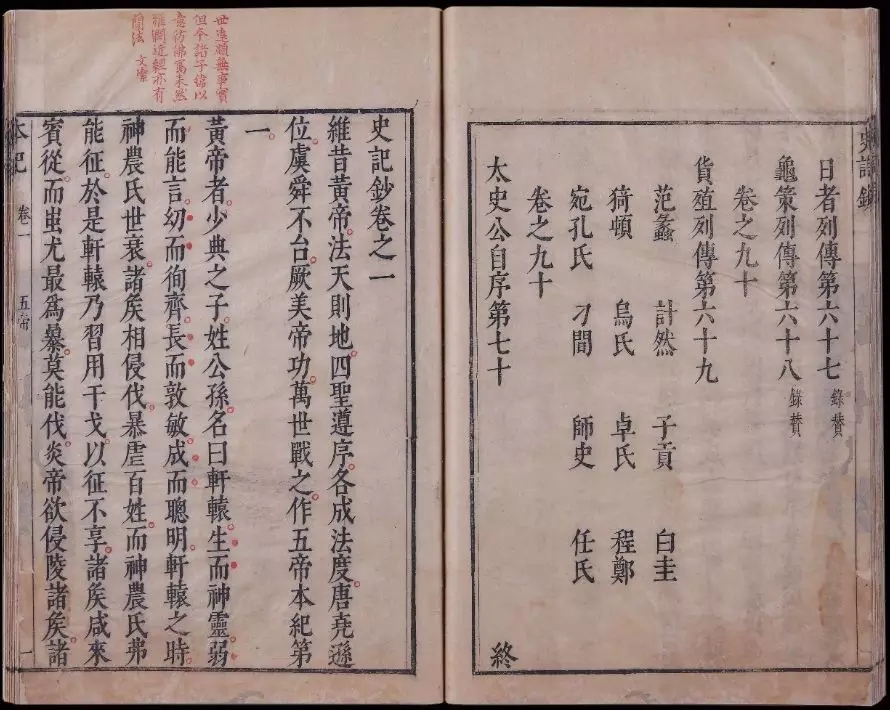 史記鈔
日者列傳第六十七 錄贊
龜策列傳第六十八 錄贊
卷之九十
貨殖列傳第六十九
范蠡 計然 子貢 白圭
猗頓 烏氏 卓氏 程鄭
宛孔氏 刁間 師史 任氏
卷之九十
太史公自序第七十 終
世遠頗無事實
但本諸子以
意彷彿爲未然
亦有
簡法 文潔
史記鈔卷之一
維昔黃帝法天則地四聖遵序各成法度唐堯遜
位虞舜不台厥美帝功萬世戰之作五帝本紀第
一
黃帝者少典之子姓公孫名曰軒轅生而神靈弱
而能言幼而徇齊長而敦敏成而聰明軒轅之時
神農氏世衰諸矦相侵伐暴虐百姓而神農氏弗
能征於是軒轅乃習用干戈以征不享諸矦咸來
賓從而蚩尤最爲暴莫能伐炎帝欲侵陵諸矦諸
本紀 卷一 五帝 一